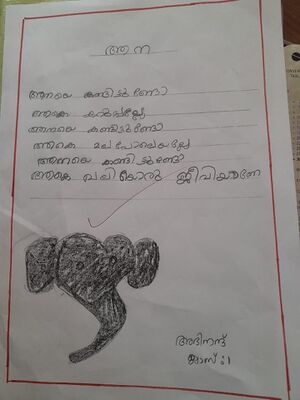 ആന
ആനയെ കണ്ടിട്ടുണ്ടോ
ആകെ കറുപ്പല്ലേ
ആനയെ കണ്ടിട്ടുണ്ടോ
ആകെ മല പോലെയല്ലേ
ആനയെ കണ്ടിട്ടുണ്ടോ
ആകെ വലിയൊരു ജീവിയാണേ
അഭിനന്ദ്
ക്ലാസ് :1